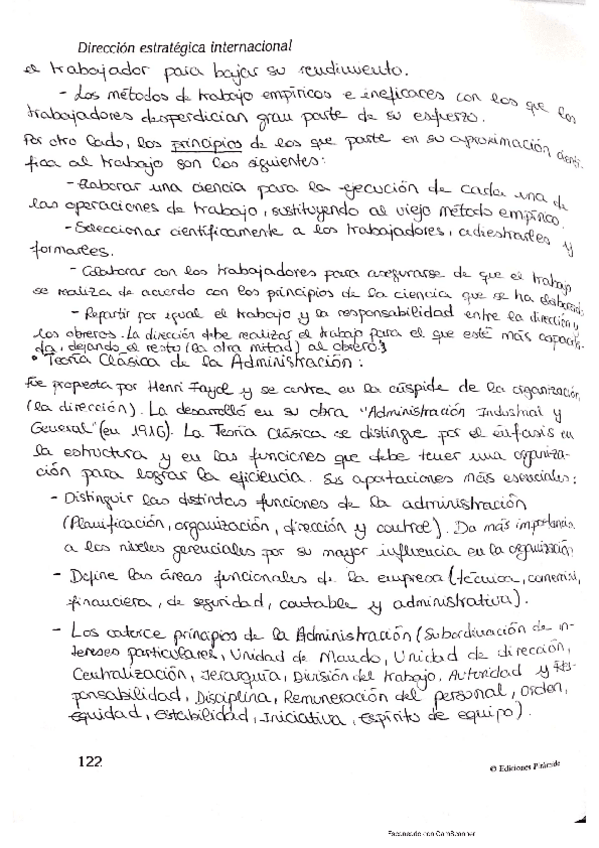 Dirección estratégica internacional
el trabajador para bajar su rendimiento.
- Los métodos de trabajo empíricos e ineficaces con los que los
trabajadores desperdician gran parte de su esfuerzo.
Por otro lado, los principios de los que parte en su aproximación cientí-
fica al trabajo son los siguientes:
- Elaborar una ciencia para la ejecución de cada una de
las operaciones de trabajo, sustituyendo al viejo método empírico.
- Seleccionar científicamente a los trabajadores, adiestrarles y
formarles.
- Colaborar con los trabajadores para asegurarse de que el trabajo
se realiza de acuerdo con los principios de la ciencia que se ha elaborado
- Repartir por igual el trabajo y la responsabilidad entre la dirección y
los obreros. La dirección debe realizar el trabajo para el que esté más capacita-
da, dejando el resto (la otra mitad) al obrero.
• Teoría Clásica de la Administración:
Fue propuesta por Henri Fayol y se centra en la cúspide de la organización,
(la dirección). La desarrolló en su obra "Administración Industrial y
General" (en 1916). La Teoría Clásica se distingue por el énfasis en
la estructura y en las funciones que debe tener una organiza-
ción para lograr la eficiencia. Sus aportaciones más esenciales:
- Distinguir las distintas funciones de la administración
(Planificación, organización, dirección y control). Da más importancia
a los niveles gerenciales por su mayor influencia en la organización
- Define las áreas funcionales de la empresa (técnica, comercial,
financiera, de seguridad, contable y administrativa).
- Los catorce principios de la Administración (Subordinación de in-
tereses particulares, Unidad de Mando, Unidad de dirección,
Centralización, Jerarquía, División del trabajo, Autoridad y Res-
ponsabilidad, Disciplina, Remuneración del personal, Orden,
Equidad, Estabilidad, Iniciativa, Espíritu de equipo).
122
© Ediciones Pirámide
Escaneado con CamScanner